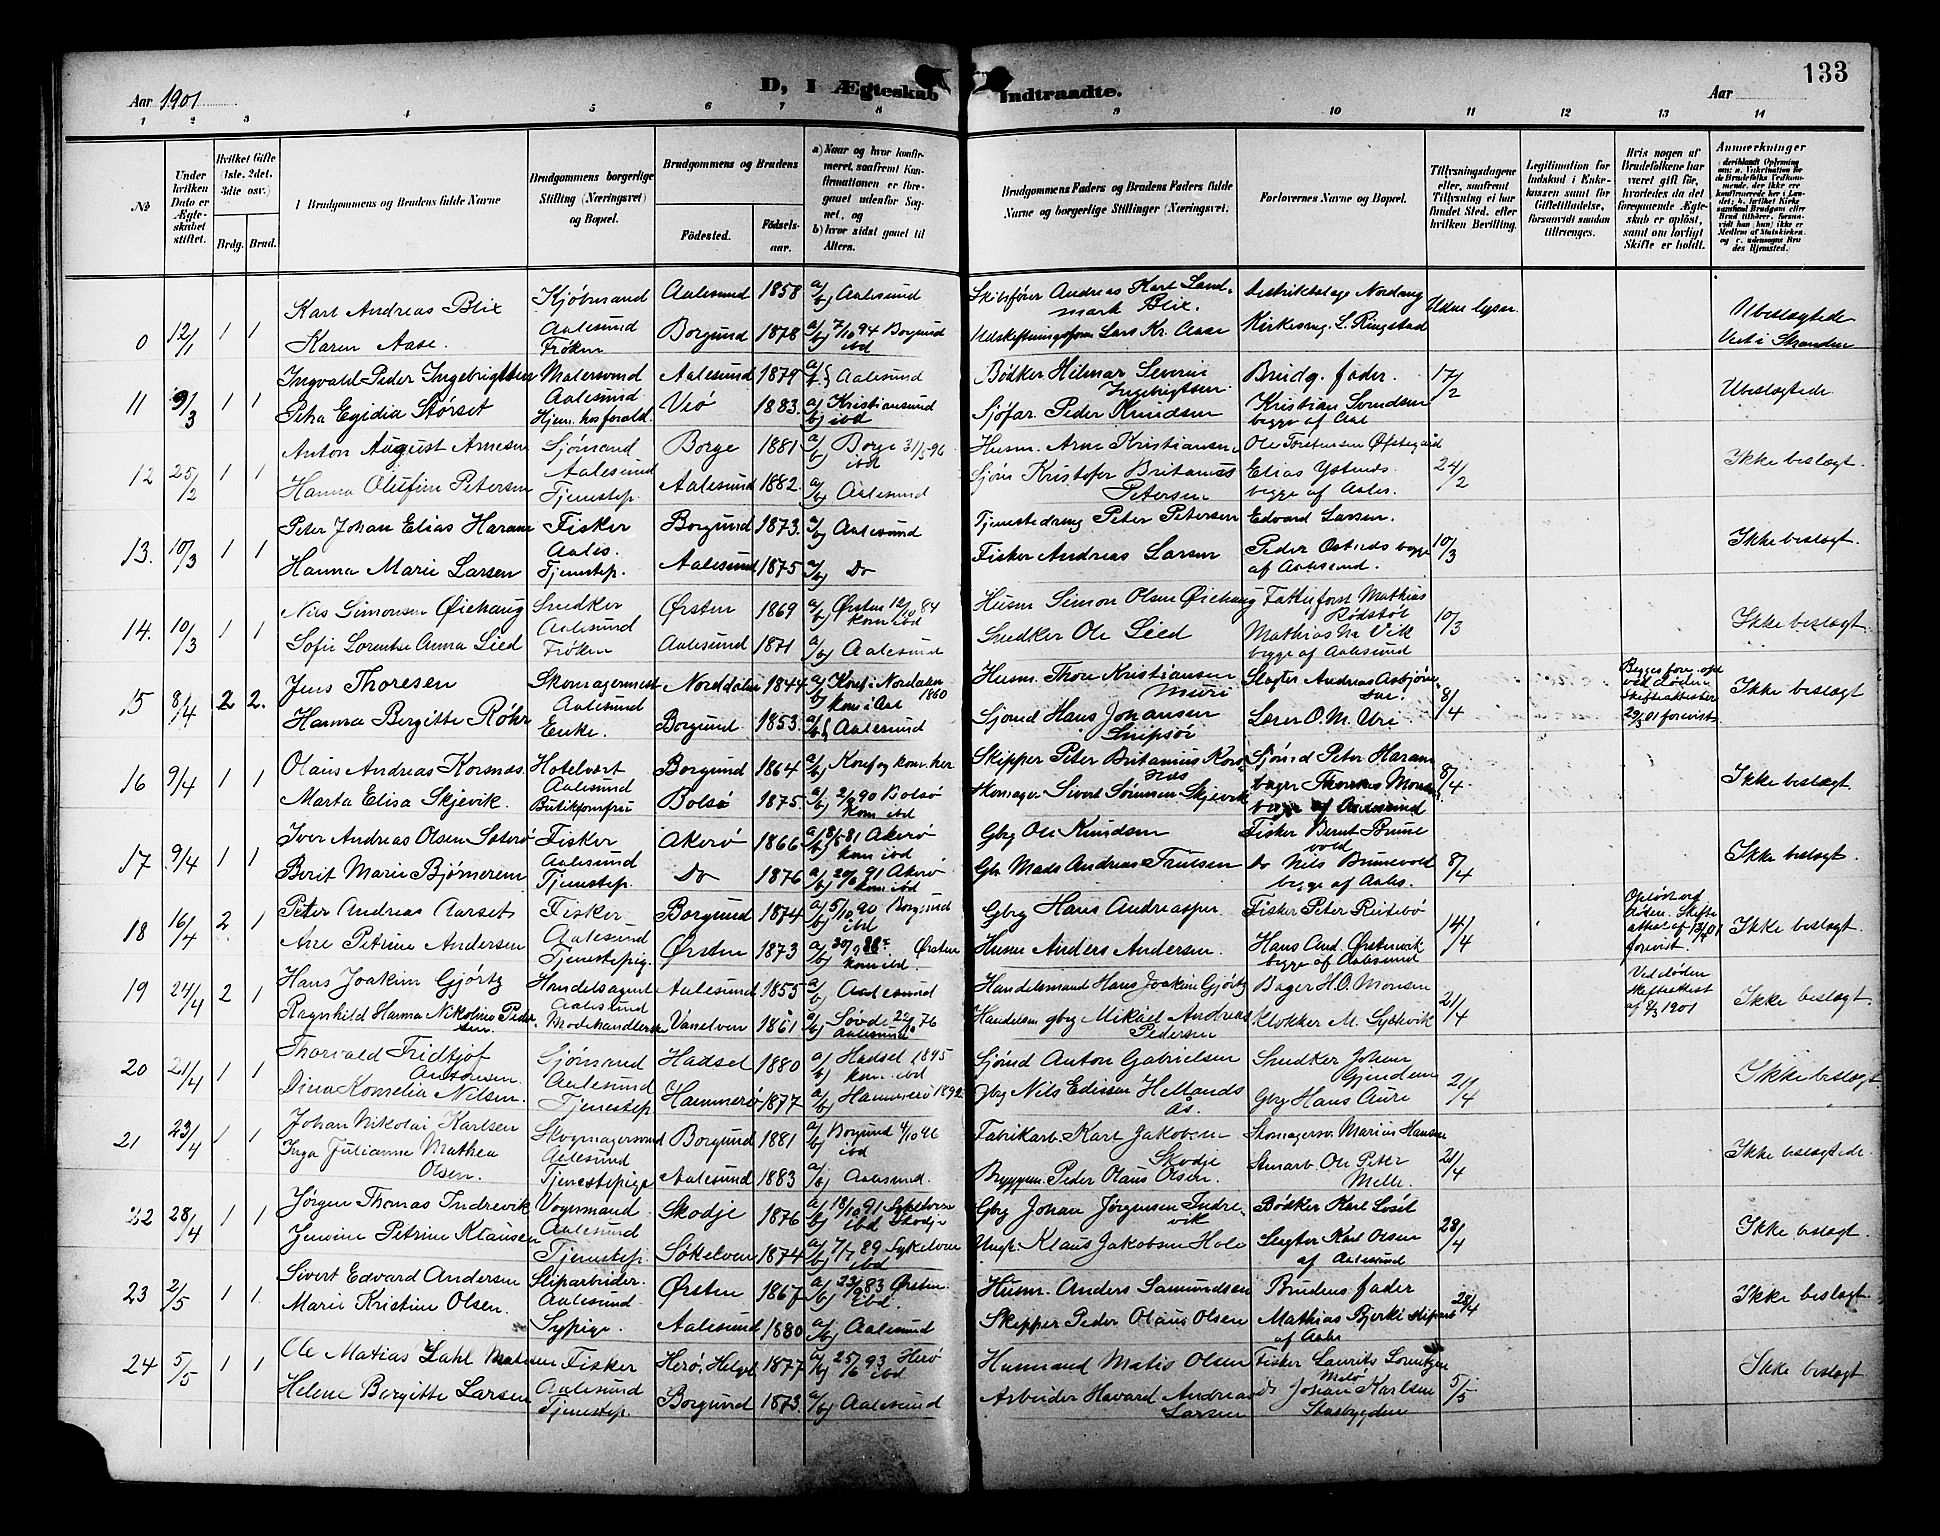 133
Aar 1901
D, I Ægteskab Indtraadte.
Aar
1 2 3 4 5 6 7 8 9 10 11 12 13 14
No
Under hvilken Dato er Ægteskabet stiftet.
Hvilket Gifte (1ste. 2det. 3dte osv.)
Brdg. Brud.
Brudgommens og Brudens fulde Navne
Brudgommens borgerlige Stilling (Næringsvei) og Bopæl.
Brudgommens og Brudens
Fødested. Fødselsaar.
a) Naar og hvor konfirmeret, saafremt Konfirmationen er foregaaet udenfor Sognet, og
b) hvor sidst gaaet til Alters.
Brudgommens Faders og Brudens Faders fulde Navne og borgerlige Stillinger (Næringsvei.
Forlovernes Navne og Bopæl.
Tillysningsdagene eller, saafremt Tillysning ei har fundet Sted, efter hvilken Bevilling.
Legitimation for Indskud i Enkekassen samt for Giftetilladelse, forsaavidt saadan tiltrænges.
Hvis nogen af Brudefolkene har været gift før, hvorledes da det foregaaende Ægteskab er opløst, samt om lovligt Skifte er holdt.
Anmerkninger
0 12/1 1 1 Karl Andreas Blix Kjøbmand Aalesund Aalesund 1858 a/b) Aalesund Skibsfører Andreas Karl Landmark Blix Distriktslæge Nordang Uden lysn. Ubeslægtede
Karen Aase. Frøken Borgund 1878 a/b) 7/10 94 Borgund ibd Lars Kr. Aase Kirkesng. L. Ringstad Viet i Stranden
11 9/3 1 1 Ingvald Peder Ingebrigtsen Malersvend Aalesund Aalesund 1879 a/b) Aalesund Bødker Hilmar Severin Ingebrigtsen Brudg. fader. 17/2 Ubeslægtede
Petra Egidia Størset Hjem. hos forald. Veø 1883. a) Kristiansund b) ibd Sjøfar. Peder Knudsen Kristian Svendsen begge af Aal
12 25/2 1 1 Anton August Arnesen Sjømand Aalesund Borge 1881 a/b) Borge 31/5 96 ibd Husm. Arne Kristiansen Ole Torstensen Østegård 24/2 Ikke beslægt.
Hanna Olufine Petersen Tjenestep. Aalesund 1882. a/b) Aalesund Sjøm Kristofer Britanius Petersen Elias Ystenes begge af Aales.
13. 10/3 1 1 Peter Johan Elias Haram Fisker Aales. Borgund 1873. a/b) Aalesund Tjenestedreng Peter Petersen Edvard Larsen. 10/3 Ikke beslægt.
Hanna Marie Larsen Tjenestep. Aalesund 1875 a/b) Do Fisker Andreas Larsen Peder Ostnes begge af Aalesund.
14. 10/3 1 1 Nils Simonsen Øiehaug Snedker Aalesund Ørsten 1869 a/b) Ørsten 12/10 84 kom. ibd Husm Simon Olsen Øiehaug Fattigforst. Mathias Rødstøl 10/3 Ikke beslægt
Sofie Lorentse Anna Lied Frøken Aalesund 1871 a/b) Aalesund Snedker Ole Lied Mathias M. Vik begge af Aalesund
15 8/4 2 2. Jens Thoresen Skomagermest Aalesund Norddalen 1844 a) Konf. i Nordalen 1860 b) kom i Aal Husm. Thore Kristiansen Muri Slagter Andreas Asbjørnsen. 8/4 Begges fore. opl ved døden. Skifteattester 29/3 01 forevist Ikke beslægt
Hanna Bergitte Røhr Enke. Borgund 1853. a/b) Aalesund Sjømd Hans Johansen Snipsør Lærer O. M. Uri
16 9/4 1 1 Olaus Andreas Korsnes Hotelvært Aalesund Borgund 1864 a/b) Konf og kom. her Skipper Peter Britanius Korsnes Sjømd Peter Haram 8/4 Ikke beslægt.
Marta Elisa Skjevik. Butikjomfru Bolsø 1875 a/b) 21/9 90 Bolsø kom ibd Skomager Sivert Sørensen Skjevik bager Thomas Monsen begge af Aalesund
17 9/4 1 1 Iver Andreas Olsen Saterø Fisker Aalesund Akerø 1866 a/b) 81 Akerø kom ibd Gbrg Ole Knudsen Fisker Bernt Brunevold 8/4 Ikke beslægt.
Berit Marie Bjørnerem Tjenestep. Do 1876 a/b) 20/9 91 Akerø kom ibd Gbr Mads Andreas Trulsen Do Nils Brunevold begge af Aales.
18 16/4 2 1 Peter Andreas Aarset Fisker Aalesund Borgund 1874 a/b) 5/10 90 Borgund ibd Gbrg Hans Andreasen. Fisker Peter Ritebø 14/4 Opløst ved døden. Skifteattest af 13/4 01 forevist. Ikke beslægt.
Ane Petrine Andersen Tjenestepig. Ørsten 1873 a/b) 30/9 88 Ørsten kom ibd. Husm Anders Andersen. Hans And. Østervik begge af Aalesund
19 24/4 2 1 Hans Joakim Gjørtz Handelsagent Aalesund Aalesund 1855 a/b) Aalesund Handelsmand Hans Joakim Gjørtz Bager H. O. Monsen 21/4 Ved døden Skifteattest af 8/3 1901 Ikke beslægt
Ragnhild Hanna Nikoline Pedersen. Modehandlerske Vanelven 1861 a) Søvde 22/9 76 b) Aalesund Handelsm gbrg Mikael Andreas Pedersen Klokker M. Gytkvik
20 21/4 1 1 Thorvald Fridtjof Antonsen. Sjømand Aalesund Hadsel 1880 a/b) Hadsel 1895 kom. ibd Sjømd Anton Gabrielsen Snedker Johan Gjendem 21/4 Ikke beslægt.
Dina Kornelia Nilsen. Tjenestep. Hammerø 1877 a/b) Hammerø 1892 Gbrg Nils Edissen Hellands Ås. Gbrg Hans Aure
21 23/4 1 1 Johan Nikolai Karlsen Skomagersvend Aalesund Borgund 1881 a/b) Borgund 4/10 96 ibd Fabrikarb. Karl Jakobsen Skodje Skomagersv. Marius Hansen 21/4 Ikke beslægtede.
Inga Julianne Mathea Olsen. Tjenestepige Aalesund 1883 a/b) Aalesund. Bryggem. Peder Olaus Olsen. Stenarb. Ole Peter Melle.
22 28/4 1 1 Jørgen Thomas Indrevik Vognmand. Aalesund Skodje 1876 a) 18/10 91 Sykelven b) ibd Skodje Gbrg Johan Jørgensen Indrevik Bødker Karl Løsil 28/4 Ikke beslægt.
Jensine Petrine Klausen Tjenestep. Søkelven 1874 a/b) 7/7 89 Sykelven ibd Ungk. Klaus Jakobsen Hole Slagter Karl Olsen af Aalesund
23 2/5 1 1. Sivert Edvard Andersen Sliparbeider. Aalesund. Ørsten 1867 a/b) 23/9 83 Ørsten ibd. Husm. Anders Samundsen Brudens fader 28/4 Ikke beslægt.
Marie Kristine Olsen. Sypige. Aalesund 1880 a/b) Aalesund Skipper Peder Olaus Olsen Mathias Bjerke af Aales
24 5/5 1 1 Ole Matias Dahl Matisen Fisker Aalesund Herø, Helgel 1877 a/b) 25/6 93 Herø ibd Husmand Matis Olsen Fisker Laurits Lorntzen Melø 5/5 Ikke beslægt
Helene Bergitte Larsen Tjenestep. Borgund 1873. a/b) Aalesund Arbeider Havard Andreas Larsen do Johan Karlsen Stasbygden